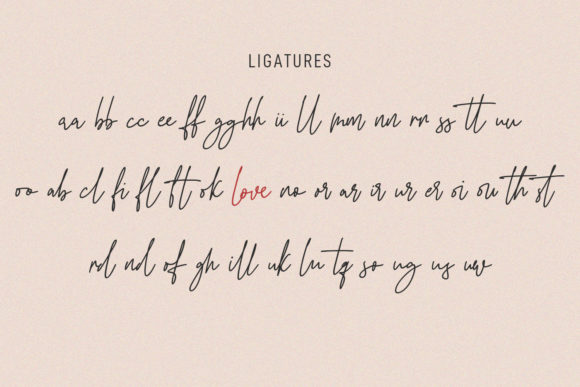 LIGATURES
aa bb cc ee ff gg hh ii ll mm nn rr ss tt uu
oo ab cl fi fl ft ok love no or ar ir ur er oi ou th st
rd nd of gh ill uk ln tq so ug us uw